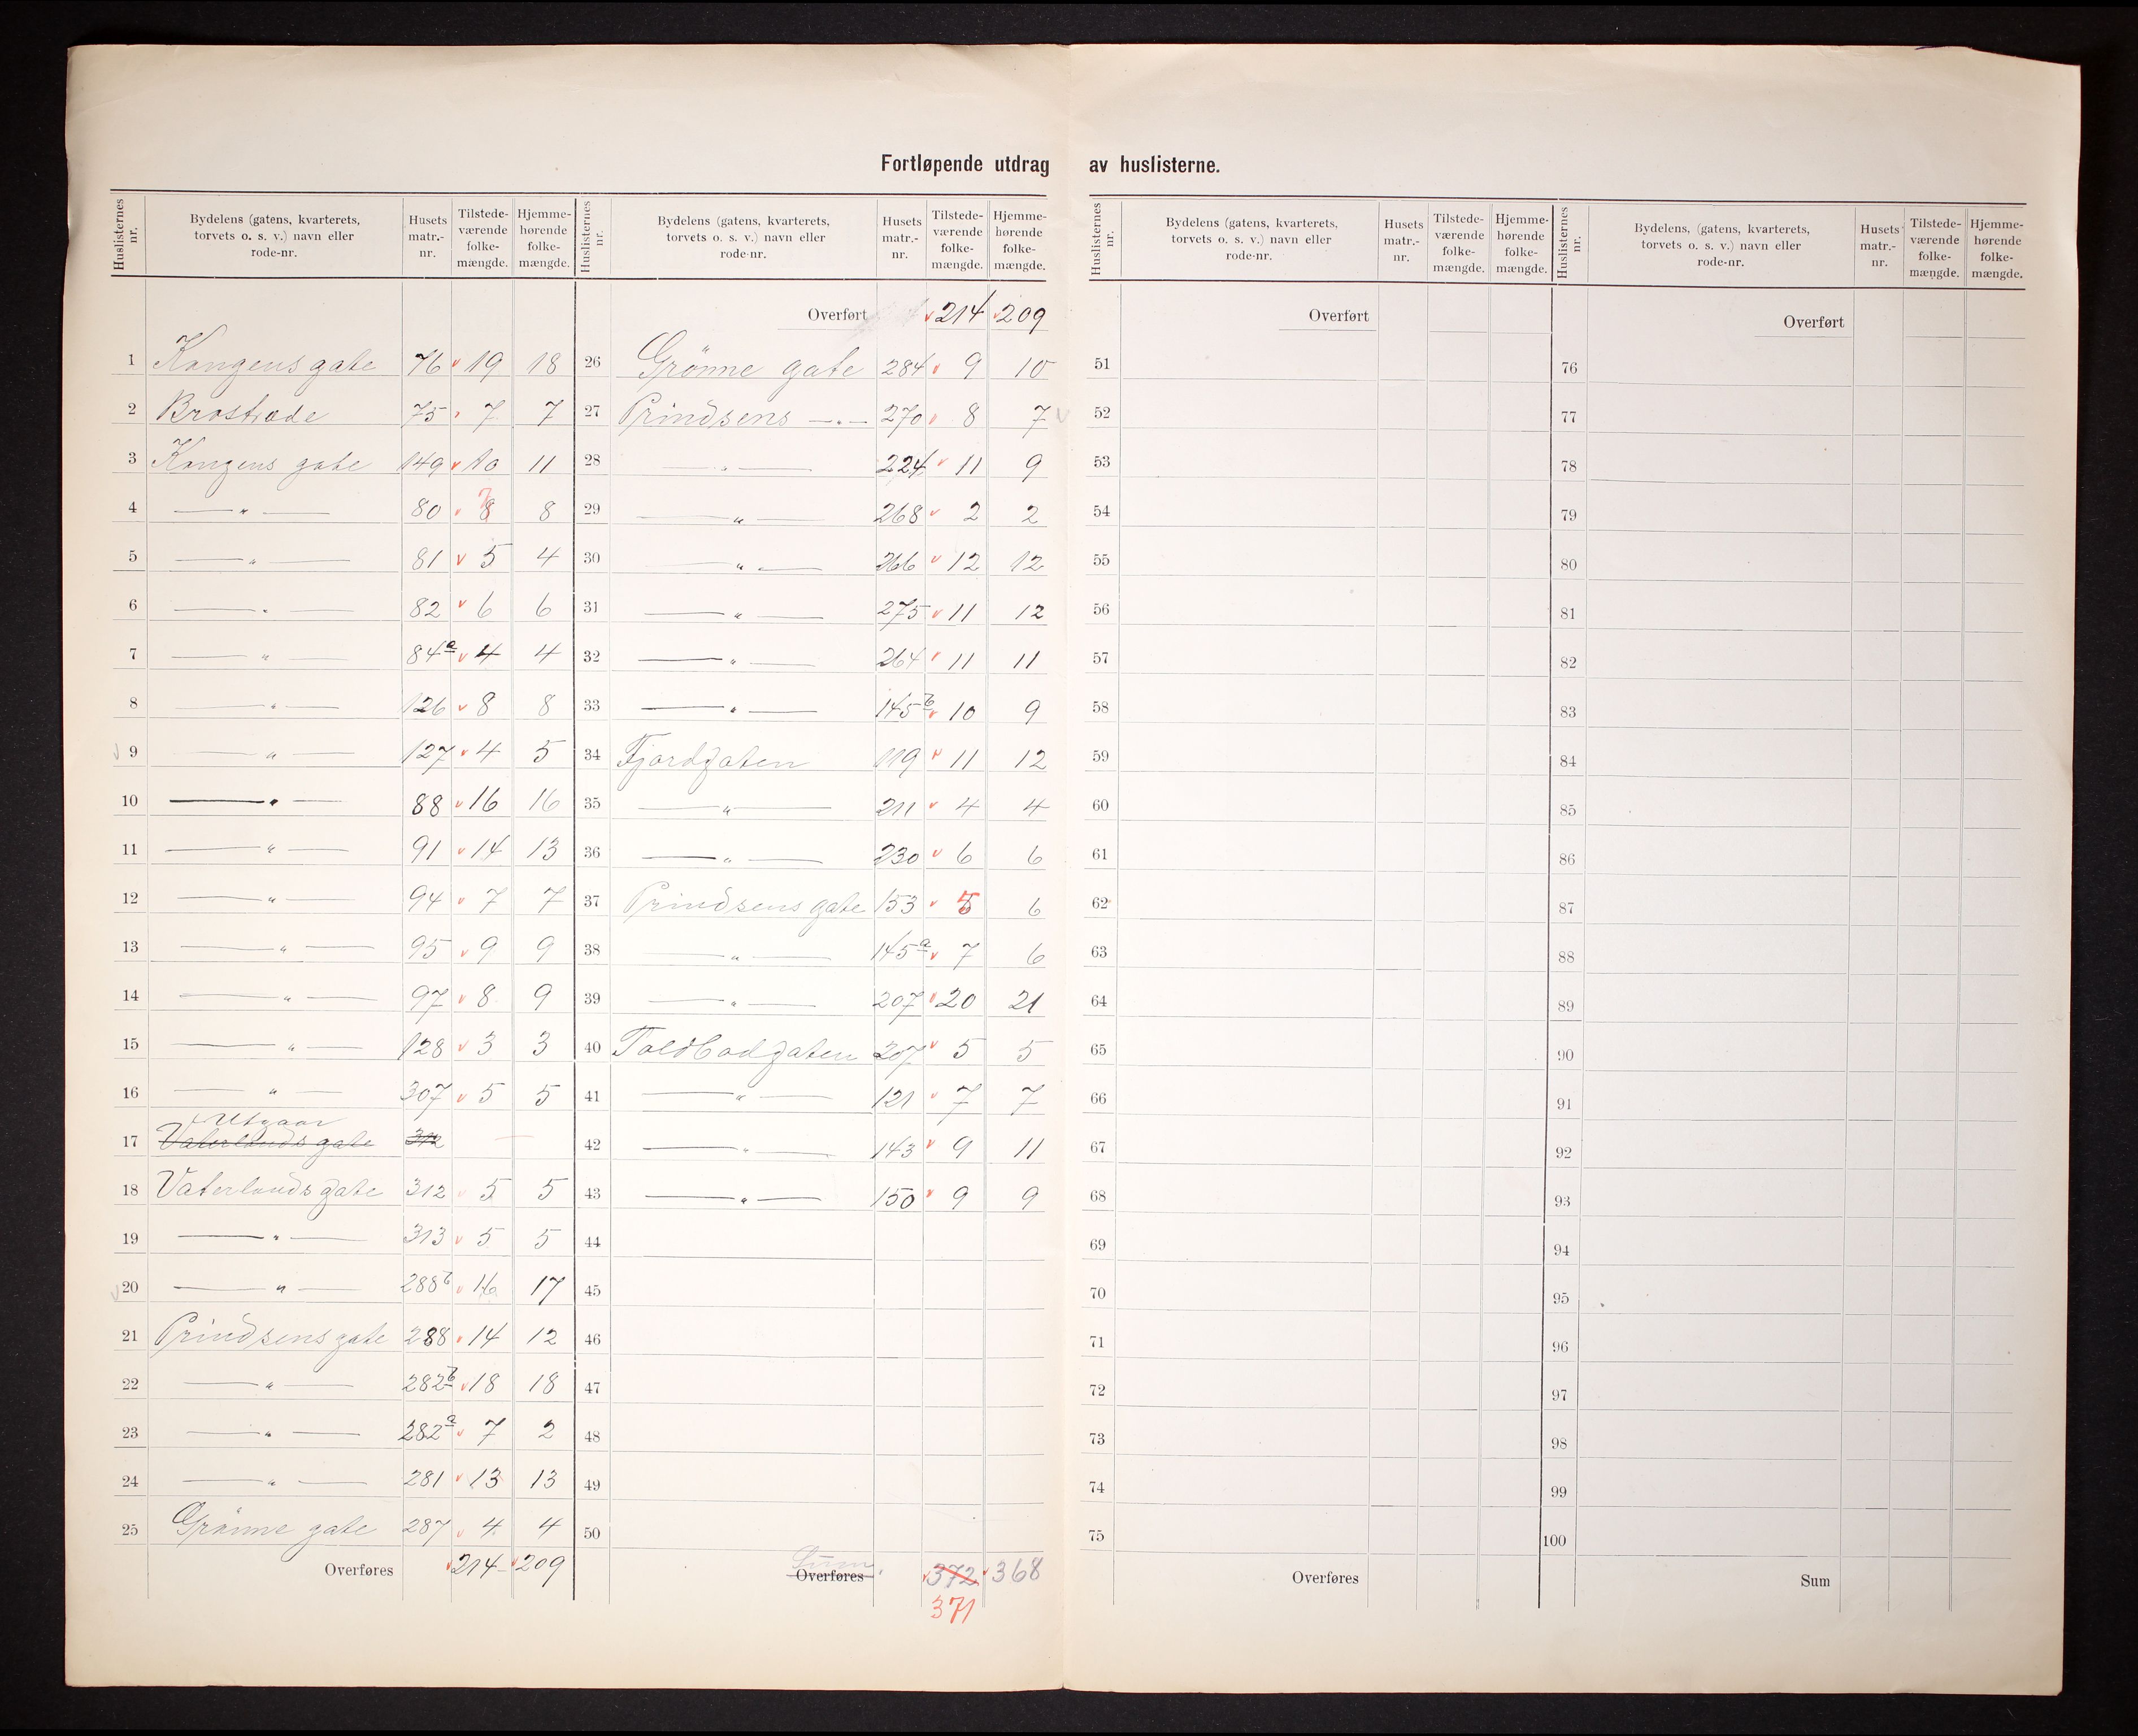 Fortløpende utdrag av huslisterne.
Huslisternes nr. Bydelens (gatens, kvarterets, torvets o. s. v.) navn eller rode-nr. Husets matr.-nr. Tilstede-værende folke-mængde. Hjemme-hørende folke-mængde.
1 Kongens gate 76 19 18
2 Brostræde 75 7 7
3 Kongens gate 149 10 11
4 — " — 80 8 7 8
5 — " — 81 5 4
6 — " — 82 6 6
7 — " — 84a 4 4
8 — " — 126 8 8
9 — " — 127 4 5
10 — " — 88 16 16
11 — " — 91 14 13
12 — " — 94 7 7
13 — " — 95 9 9
14 — " — 97 8 9
15 — " — 128 3 3
16 — " — 307 5 5
Utgaar
17 Vaterlands gate 312
18 Vaterlands gate 312 5 5
19 — " — 313 5 5
20 — " — 288b 16 17
21 Prindsens gate 288 14 12
22 — " — 282b 18 18
23 — " — 282a 7 2
24 — " — 281 13 13
25 Grönne gate 287 4 4
Overføres 214 209
Huslisternes nr. Bydelens (gatens, kvarterets, torvets o. s. v.) navn eller rode-nr. Husets matr.-nr. Tilstede-værende folke-mængde. Hjemme-hørende folke-mængde.
Overført 214 209
26 Grönne gate 284 9 10
27 Prindsens — " — 270 8 7
28 — " — 224 11 9
29 — " — 268 2 2
30 — " — 266 12 12
31 — " — 275 11 12
32 — " — 264 11 11
33 — " — 145b 10 9
34 Fjordgaten 119 11 12
35 — " — 211 4 4
36 — " — 230 6 6
37 Prindsens gate 153 5 6
38 — " — 145a 7 6
39 — " — 207 20 21
40 Toldbodgaten 207 5 5
41 — " — 121 7 7
42 — " — 143 9 11
43 — " — 150 9 9
44
45
46
47
48
49
50
Sum
Overføres 372 368
371
Huslisternes nr. Bydelens (gatens, kvarterets, torvets o. s. v.) navn eller rode-nr. Husets matr.-nr. Tilstede-værende folke-mængde. Hjemme-hørende folke-mængde.
Overført
51
52
53
54
55
56
57
58
59
60
61
62
63
64
65
66
67
68
69
70
71
72
73
74
75
Overføres
Huslisternes nr. Bydelens, (gatens, kvarterets, torvets o. s. v.) navn eller rode-nr. Husets matr.-nr. Tilstede-værende folke-mængde. Hjemme-hørende folke-mængde.
Overført
76
77
78
79
80
81
82
83
84
85
86
87
88
89
90
91
92
93
94
95
96
97
98
99
100
Sum